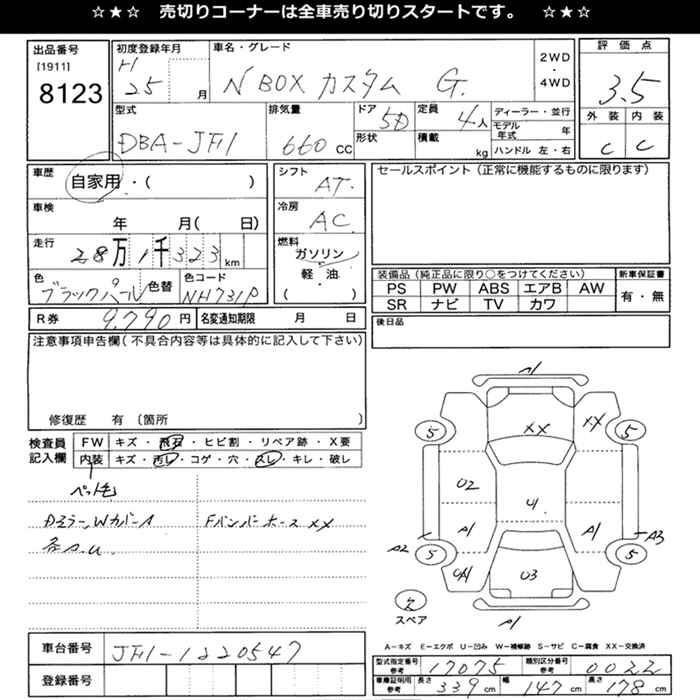 ☆★☆ 売切りコーナーは全車売り切りスタートです。 ☆★☆
出品番号
[1911]
8123
初度登録年月
H
25 月
車名・グレード
N BOX カスタム G.
2WD
・
4WD
評価点
3.5
外装 内装
C C
型式
DBA-JF1
排気量
660 cc
ドア
5D
形状
定員
4人
積載
kg
ディーラー・並行
モデル年式 年
ハンドル 左・右
車歴
自家用・( )
車検
年 月( 日)
走行
28万1千323 km
色
ブラックパール
色替
色コード
NH731P
シフト
AT.
冷房
AC
燃料
ガソリン
軽・油
( )
セールスポイント (正常に機能するものに限ります)
装備品 (純正品に限り○をつけてください)
PS PW ABS エアB AW
SR ナビ TV カワ
新車保証書
有・無
R券 9,790円
名変通知期限 月 日
後日品
注意事項申告欄 (不具合内容等は具体的に記入して下さい)
修復歴 有 〔箇所 〕
検査員記入欄
FW キズ・飛石・ヒビ割・リペア跡・X要
内装 キズ・汚レ・コゲ・穴・スレ・キレ・破レ
ペット毛
Dミラー、Wカバー A
各A.U
Fバンパーホース XX
A1
XX
XX
5
5
02
U1
A1
A1
A2
A3
5
5
03
A1
スペア
A-キズ E-エクボ U-凹み W-補修跡 S-サビ C-腐食 XX-交換済
車台番号
JF1-1220547
登録番号
型式指定番号 参考
17075
類別区分番号 参考
0022
車庫証明用 参考
長さ 339 cm
幅 147 cm
高さ 178 cm